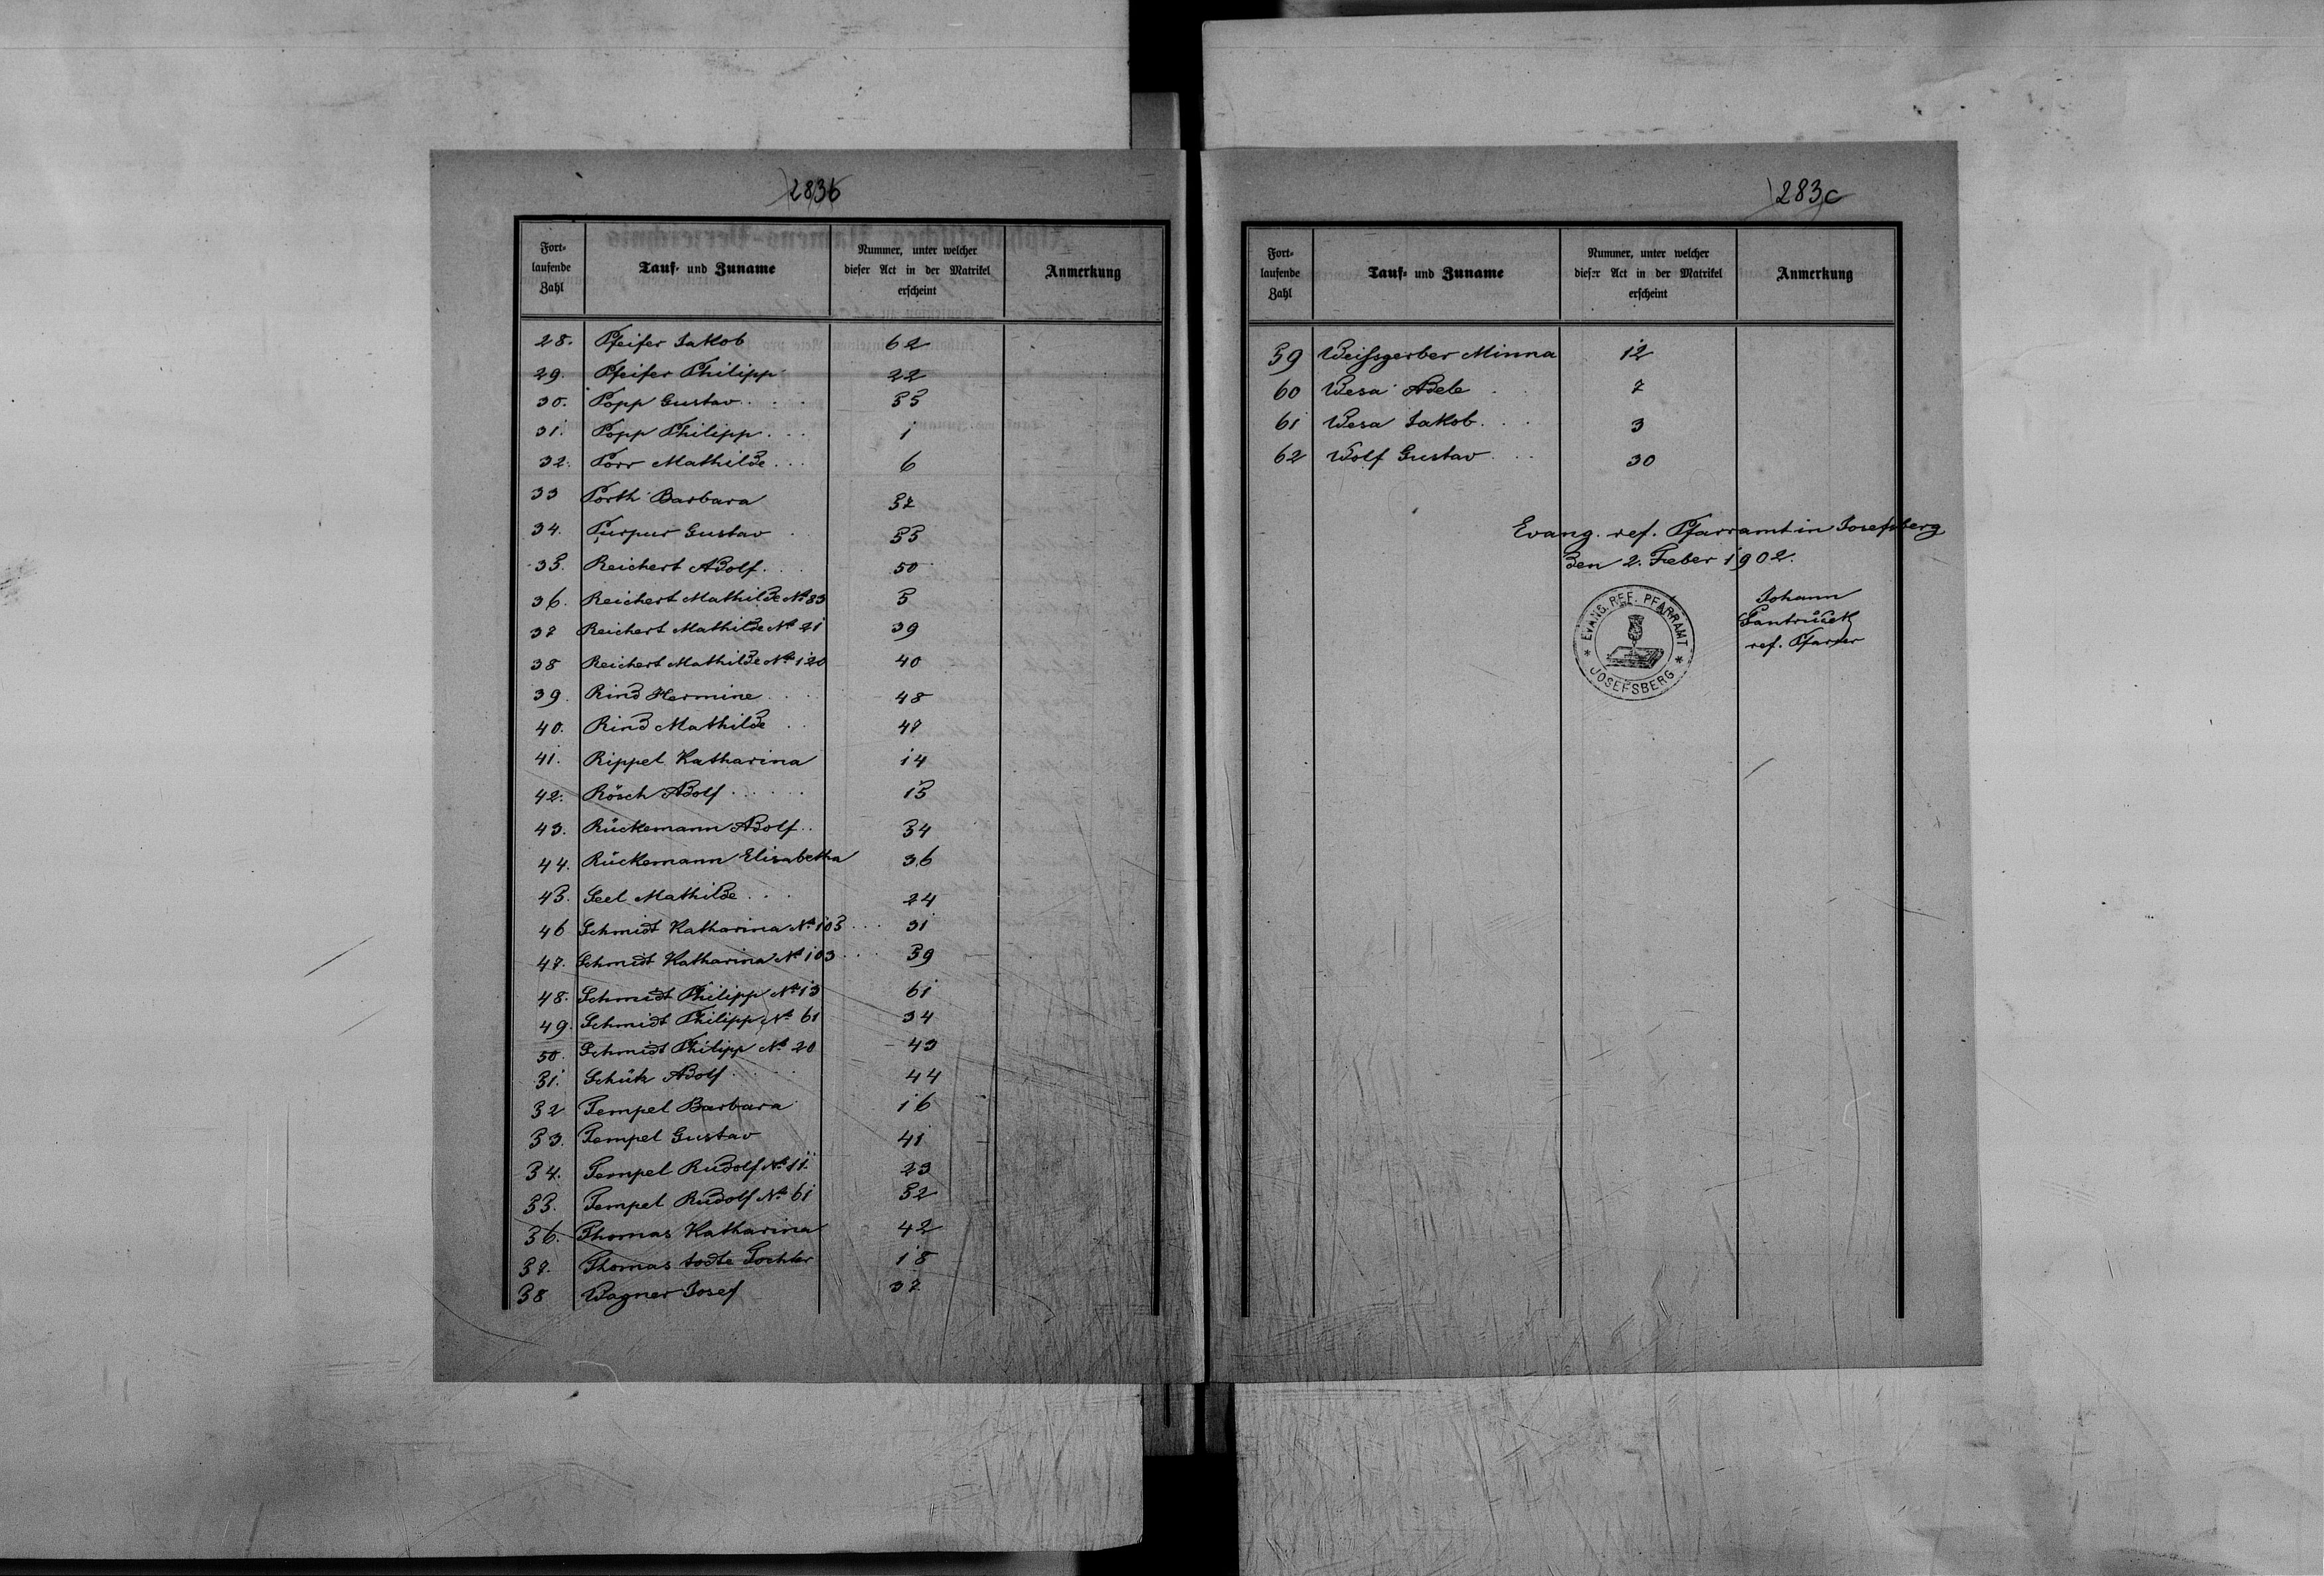 283b
Fort-
laufende
Zahl
Tauf- und Zuname
Nummer, unter welcher
dieser Act in der Matrikel
erscheint
Anmerkung
28. Pfeifer Jakob 62
29. Pfeifer Philipp 22
30. Popp Gustav . . . 55
31. Popp Philipp . . . 1
32. Porr Mathilde . . . 6
33 Porth Barbara 57
34. Purpur Gustav . 53
35. Reichert Adolf . . . 50
36. Reichert Mathilde No 83 5
37 Reichert Mathilde No 21 39
38 Reichert Mathilde No 120 40
39. Rind Hermine . . . 48
40. Rind Mathilde . . 47
41. Rippel Katharina 14
42. Rösch Adolf . . . . . 15
43. Rückemann Adolf . . 54
44. Rückemann Elisabetha 36
45. Seel Mathilde . . . 24
46 Schmidt Katharina No 105 . . . 31
47. Schmidt Katharina No 103 . . . 59
48. Schmidt Philipp No 13 61
49. Schmidt Philipp No 61 34
50. Schmidt Philipp No 20 43
51. Schük Adolf . . . . 44
52 Tempel Barbara 16
53. Tempel Gustav 41
54. Tempel Rudolf No 11. 23
55. Tempel Rudolf No 61 52
56. Thomas Katharina 42
57. Thomas todte Tochter 18
58 Wagner Josef 37
283c
Fort-
laufende
Zahl
Tauf- und Zuname
Nummer, unter welcher
dieser Act in der Matrikel
erscheint
Anmerkung
59 Weißgerber Minna 12
60 Wesa Adele . . 7
61 Wesa Jakob . . . 3
62 Wolf Gustav . . . 30
Evang. ref. Pfarramt in Josefsberg
den 2. Feber 1902.
Johann
ref. Pfarrer
* EVANG. REF. PFARRAMT *
JOSEFSBERG